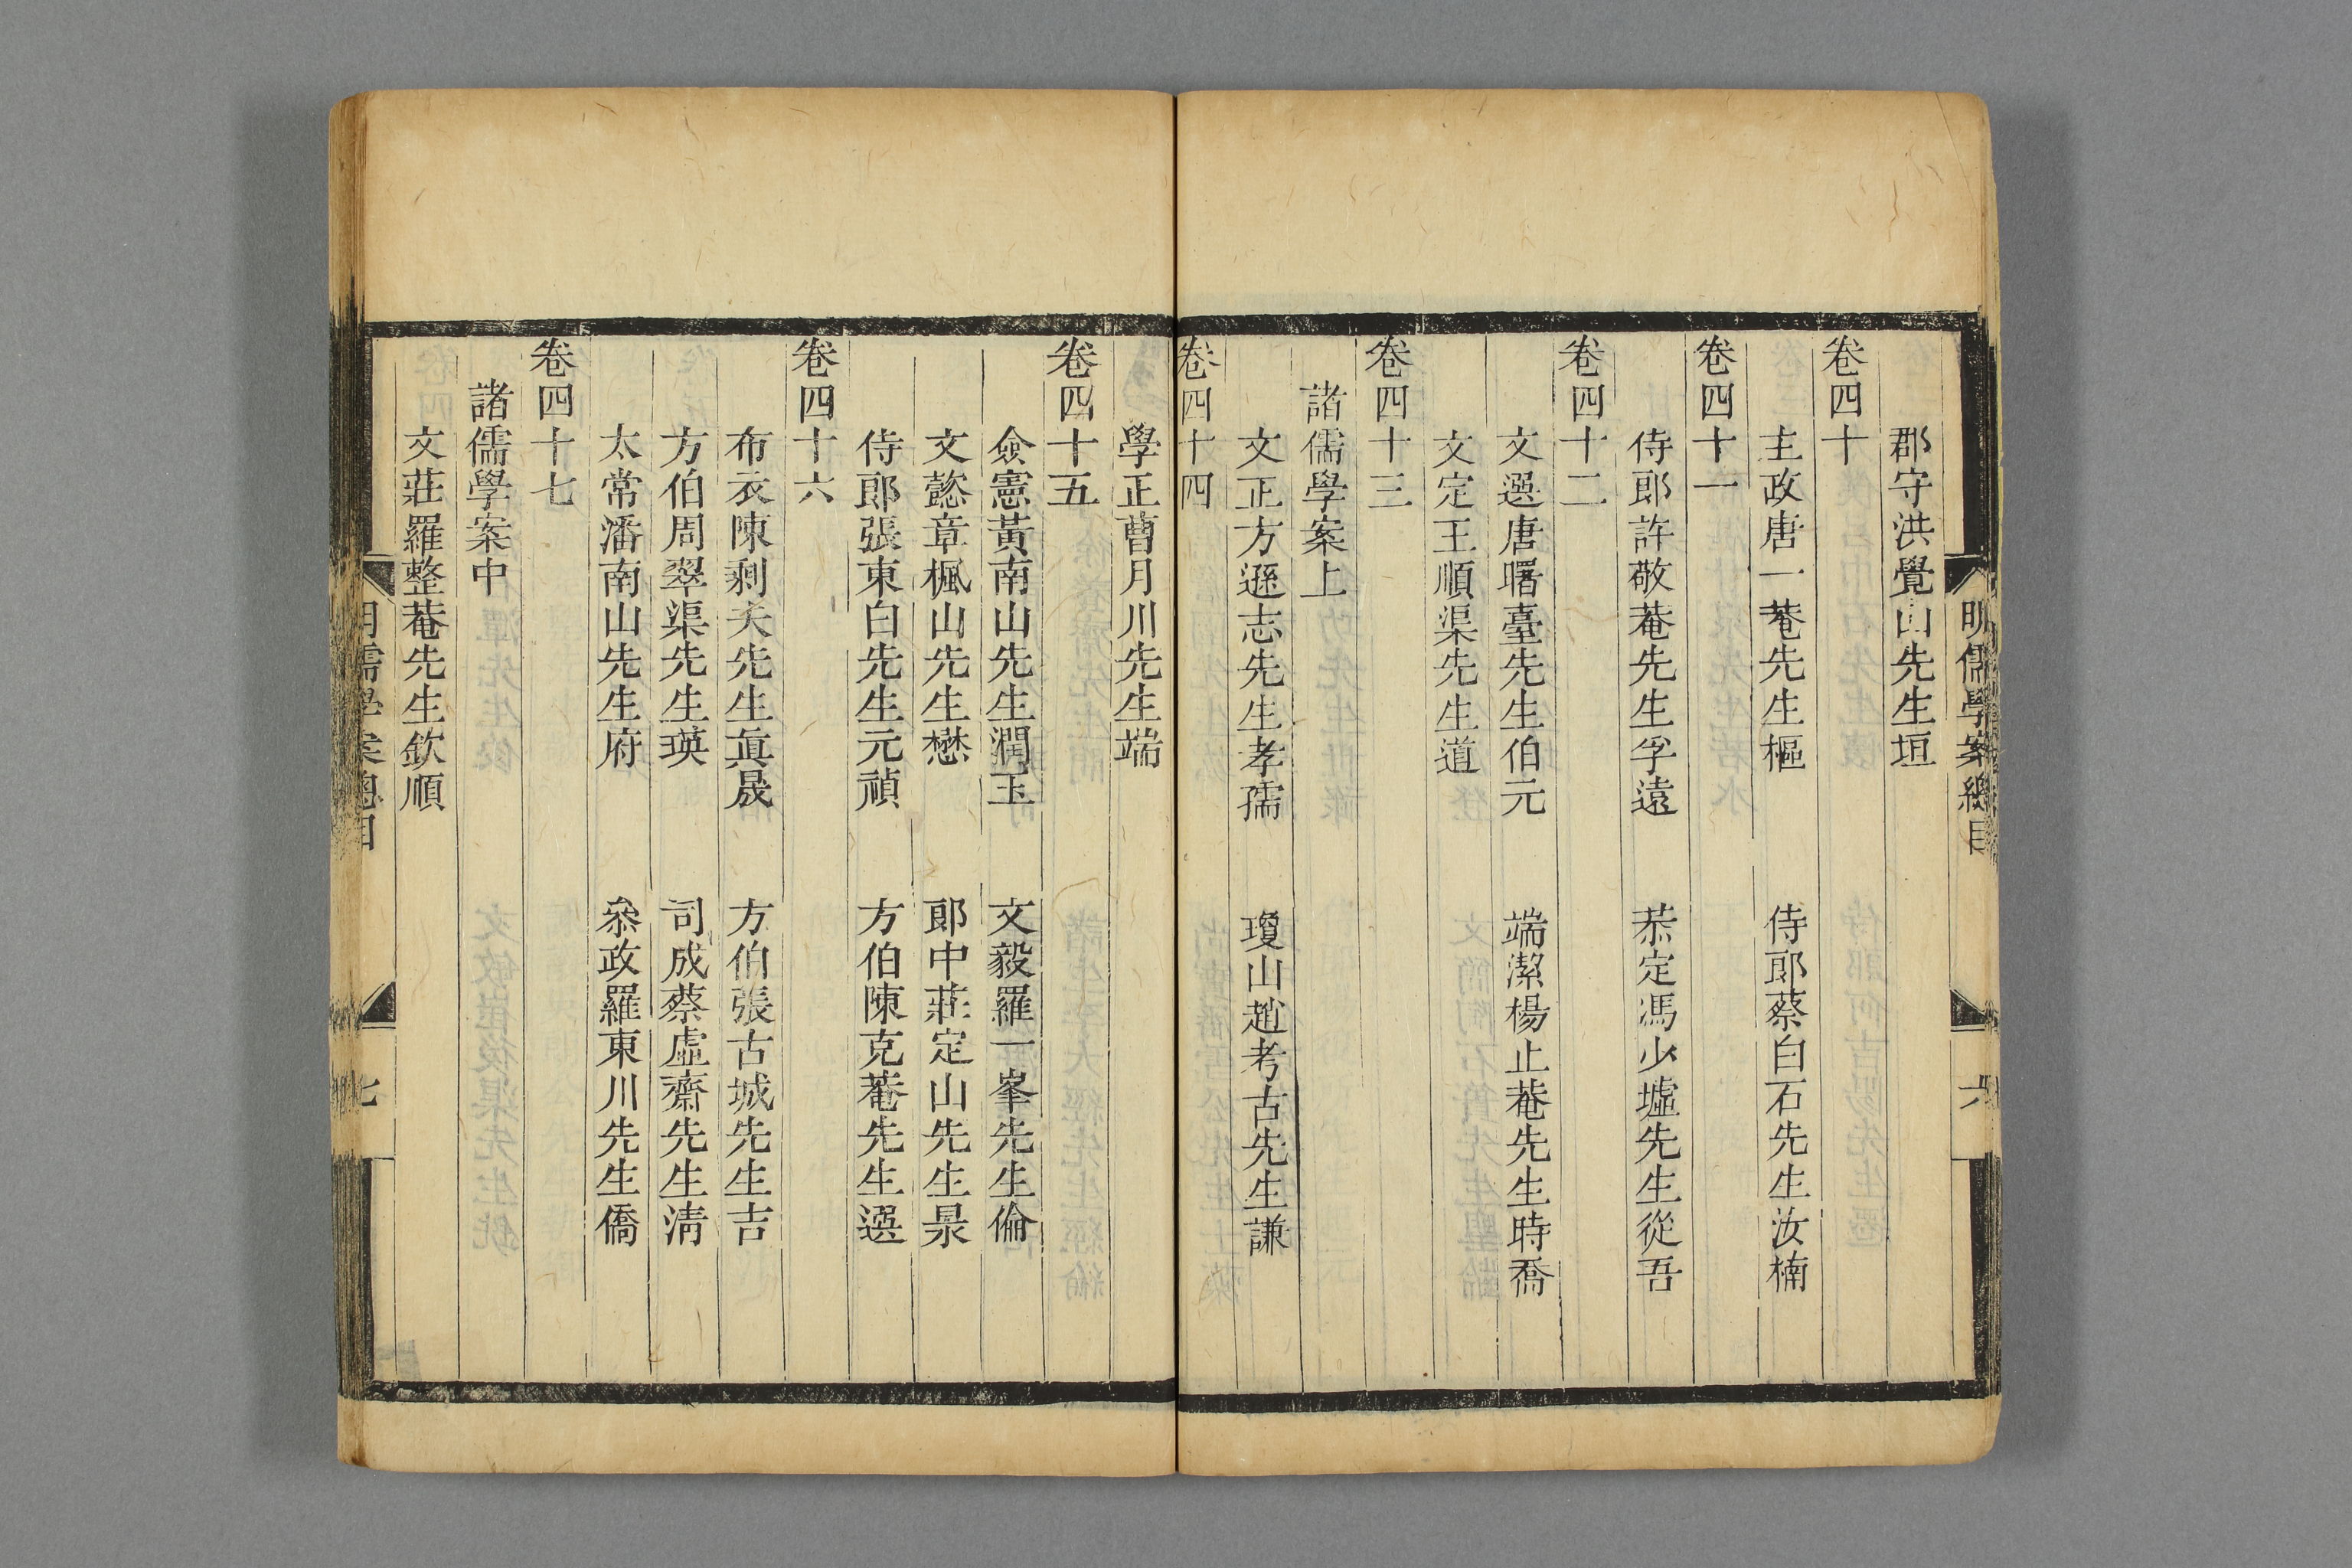 明儒學案總目
六
郡守洪覺山先生垣
卷四十
主政唐一菴先生樞 侍郎蔡白石先生汝楠
卷四十一
侍郎許敬菴先生孚遠 恭定馮少墟先生從吾
卷四十二
文選唐曙臺先生伯元 端潔楊止菴先生時喬
文定王順渠先生道
卷四十三
諸儒學案上
文正方遜志先生孝孺 瓊山趙考古先生謙
卷四十四
學正曹月川先生端
卷四十五
僉憲黃南山先生潤玉 文毅羅一峯先生倫
文懿章楓山先生懋 郎中莊定山先生㫤
侍郎張東白先生元禎 方伯陳克菴先生選
卷四十六
布衣陳剩夫先生眞晟 方伯張古城先生吉
方伯周翠渠先生瑛 司成蔡虛齋先生清
太常潘南山先生府 叅政羅東川先生僑
卷四十七
諸儒學案中
文莊羅整菴先生欽順
明儒學案總目
七